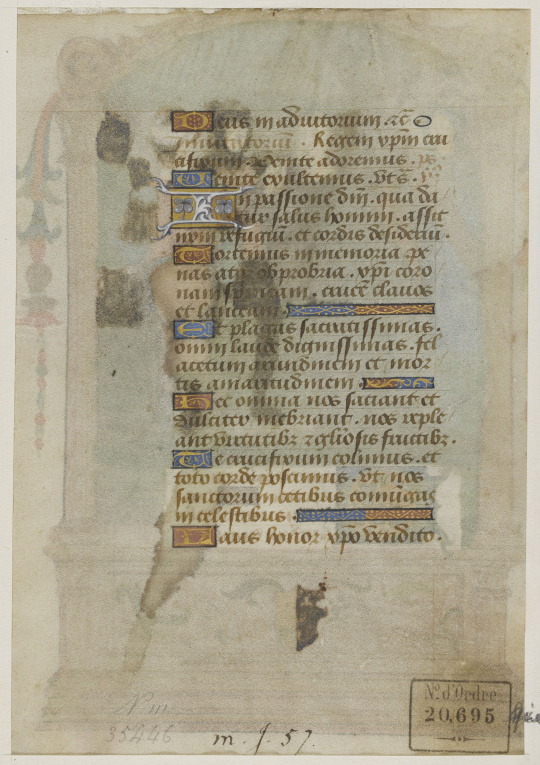 Deus in adiutorium ⁊c̄
Inuitatoriū. Regem xp̄m cru
cifixum Venite adoremus. ps
Venite exultemus. vt s̄.
In passione dn̄i. qua da
tur salus homini. assit
nr̄m refugiū. et cordis desideriū.
Portemus in memoria pe
nas atq obprobria. xp̄i coro
nam spineam. crucē clauos
et lanceam
Et plagas sacratissimas.
omni laude dignissimas. fel
acetum arundinem et mor
tis amaritudinem
Hec omnia nos saciant et
dulciter inebriant. nos reple
ant virtutibz ⁊ gl̄iosis fructibz.
Te crucifixum colimus. et
toto corde poscimus. vt nos
sanctorum cetibus coniūgas
in celestibus.
Laus honor xp̄o vendito.
Nº d'Ordre
20,695
35446
m. f. 57.